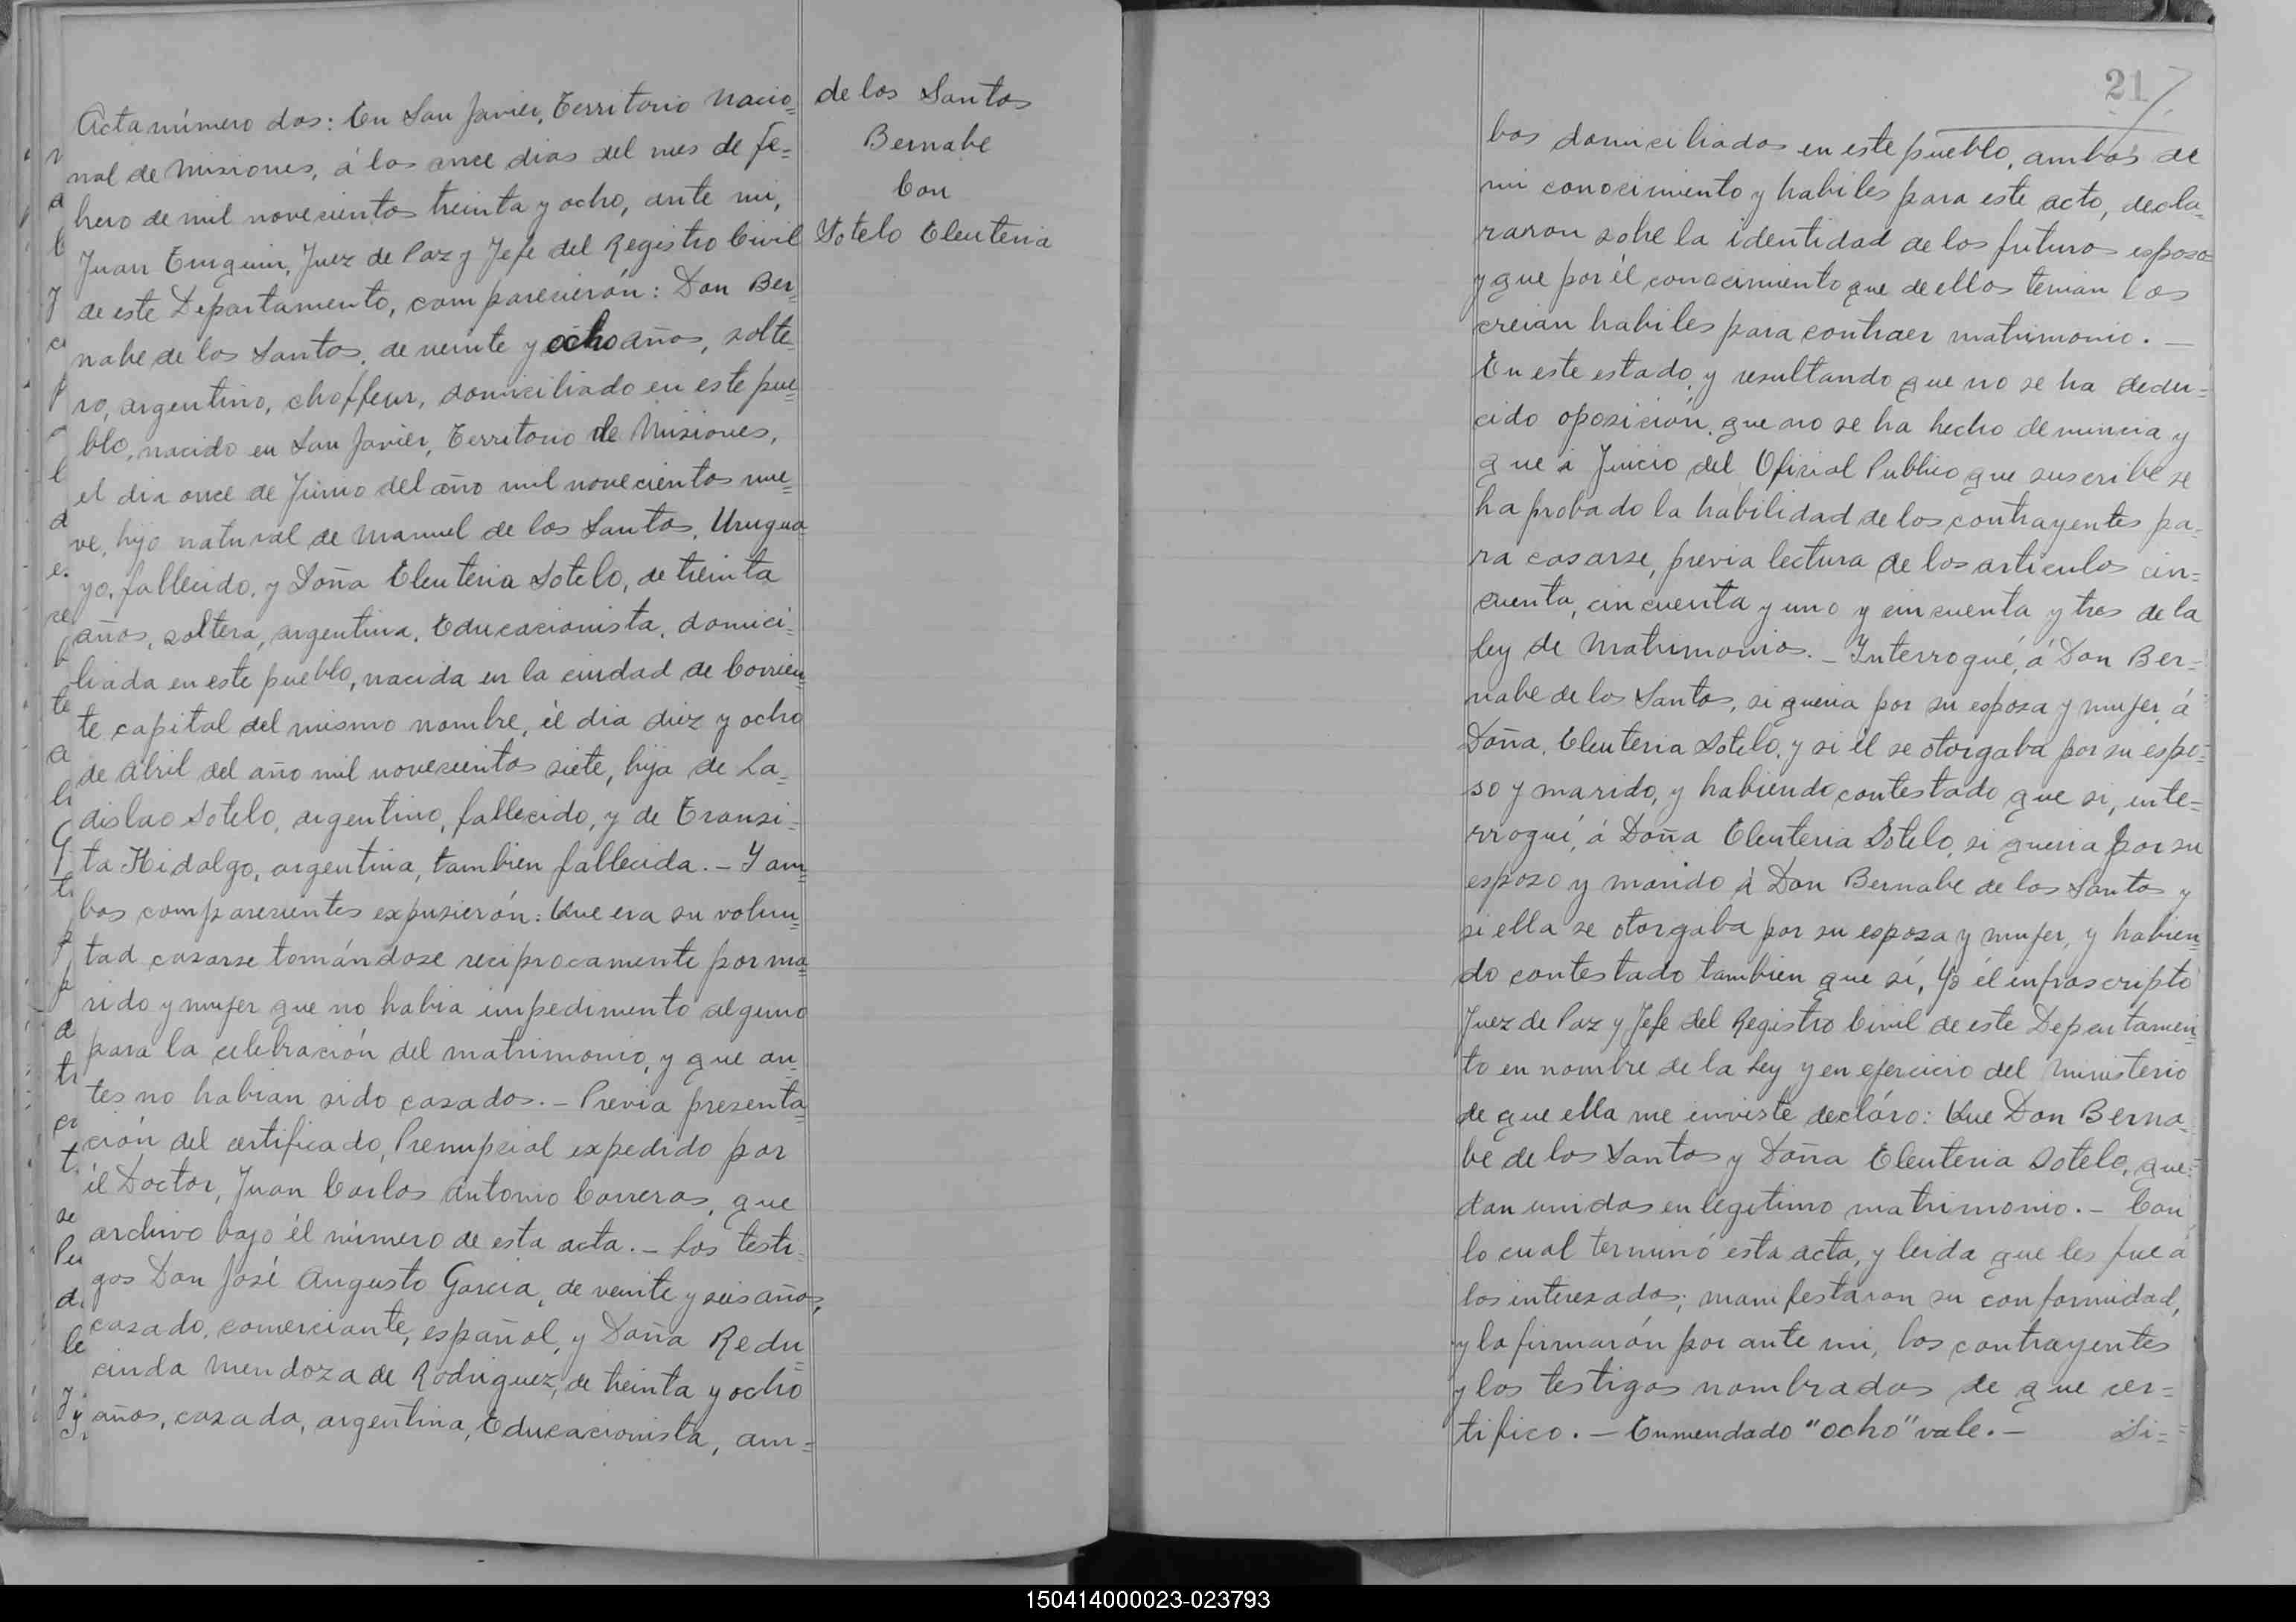 Acta número dos: En San Javier, Territorio Nacio=
nal de Misiones, á los once dias del mes de fe=
brero de mil novecientos treinta y ocho, ante mi,
Juan Juez de Paz y Jefe del Registro Civil
de este Departamento, comparecierón: Don Ber=
nabe de los Santos, de veinte y ocho años, solte=
ro, argentino, choffeur, domiciliado en este pue=
blo, nacido en San Javier, Territorio de Misiones,
el dia once de Junio del año mil novecientos nue=
ve, hijo natural de Manuel de los Santos, Urugua=
yo, fallecido, y Doña Eleuteria Sotelo, de treinta
años, soltera, argentina, Educacionista, domici=
liada en este pueblo, nacida en la ciudad de Corrien=
te capital del mismo nombre, él dia diez y ocho
de Abril del año mil novecientos siete, hija de La=
dislao Sotelo, argentino, fallecido, y de Transi=
ta Hidalgo, argentina, tambien fallecida. - Y am=
bos comparecientes expusierón: Que era su volun=
tad casarse tomándose reciprocamente por ma=
rido y mujer que no habia impedimento alguno
para la celebración del matrimonio, y que an=
tes no habian sido casados. - Previa presenta=
ción del certificado, Prenupcial expedido por
él Doctor, Juan Carlos Antonio Carreras, que
archivo bajo él número de esta acta. - Los testi=
gos Don José Augusto Garcia, de veinte y seis años,
casado, comerciante, español, y Doña Redu=
cinda Mendoza de Rodriguez, de treinta y ocho
años, casada, argentina, Educacionista, am=
de los Santos
Bernabe
Con
Sotelo Eleuteria
21
bos domiciliados en este pueblo, ambos de
mi conocimiento y habiles para este acto, decla=
raron sobre la identidad de los futuros esposos
y que por él conocimiento que de ellos tenian los
creian habiles para contraer matrimonio. -
En este estado, y resultando que no se ha dedu=
cido oposición, que no se ha hecho denuncia y
que á Juicio del Oficial Publico que suscribe se
ha probado la habilidad de los contrayentes pa=
ra casarse, previa lectura de los articulos cin=
cuenta, cincuenta y uno y cincuenta y tres de la
Ley de Matrimonios. - Interrogué, á Don Ber=
nabe de los Santos, si queria por su esposa y mujer, á
Doña, Eleuteria Sotelo, y si él se otorgaba por su espo=
so y marido, y habiendo contestado que si, inte=
rrogué, á Doña Eleuteria Sotelo, si queria por su
esposo y marido á Don Bernabe de los Santos y
si ella se otorgaba por su esposa y mujer, y habien=
do contestado tambien que sí, Yo él infrascripto
Juez de Paz y Jefe del Registro Civil de este Departamen=
to en nombre de la Ley y en ejercicio del Ministerio
de que ella me enviste decláro: Que Don Berna=
be de los Santos y Doña Eleuteria Sotelo, que=
dan unidos en legitimo matrimonio. - Con
lo cual terminó esta acta, y leida que les fue á
los interesados; manifestaron su conformidad,
y la firmarón por ante mi, los contrayentes
y los testigos nombrados de que cer=
tifico. - Enmendado "ocho" vale. - Si=
150414000023-023793